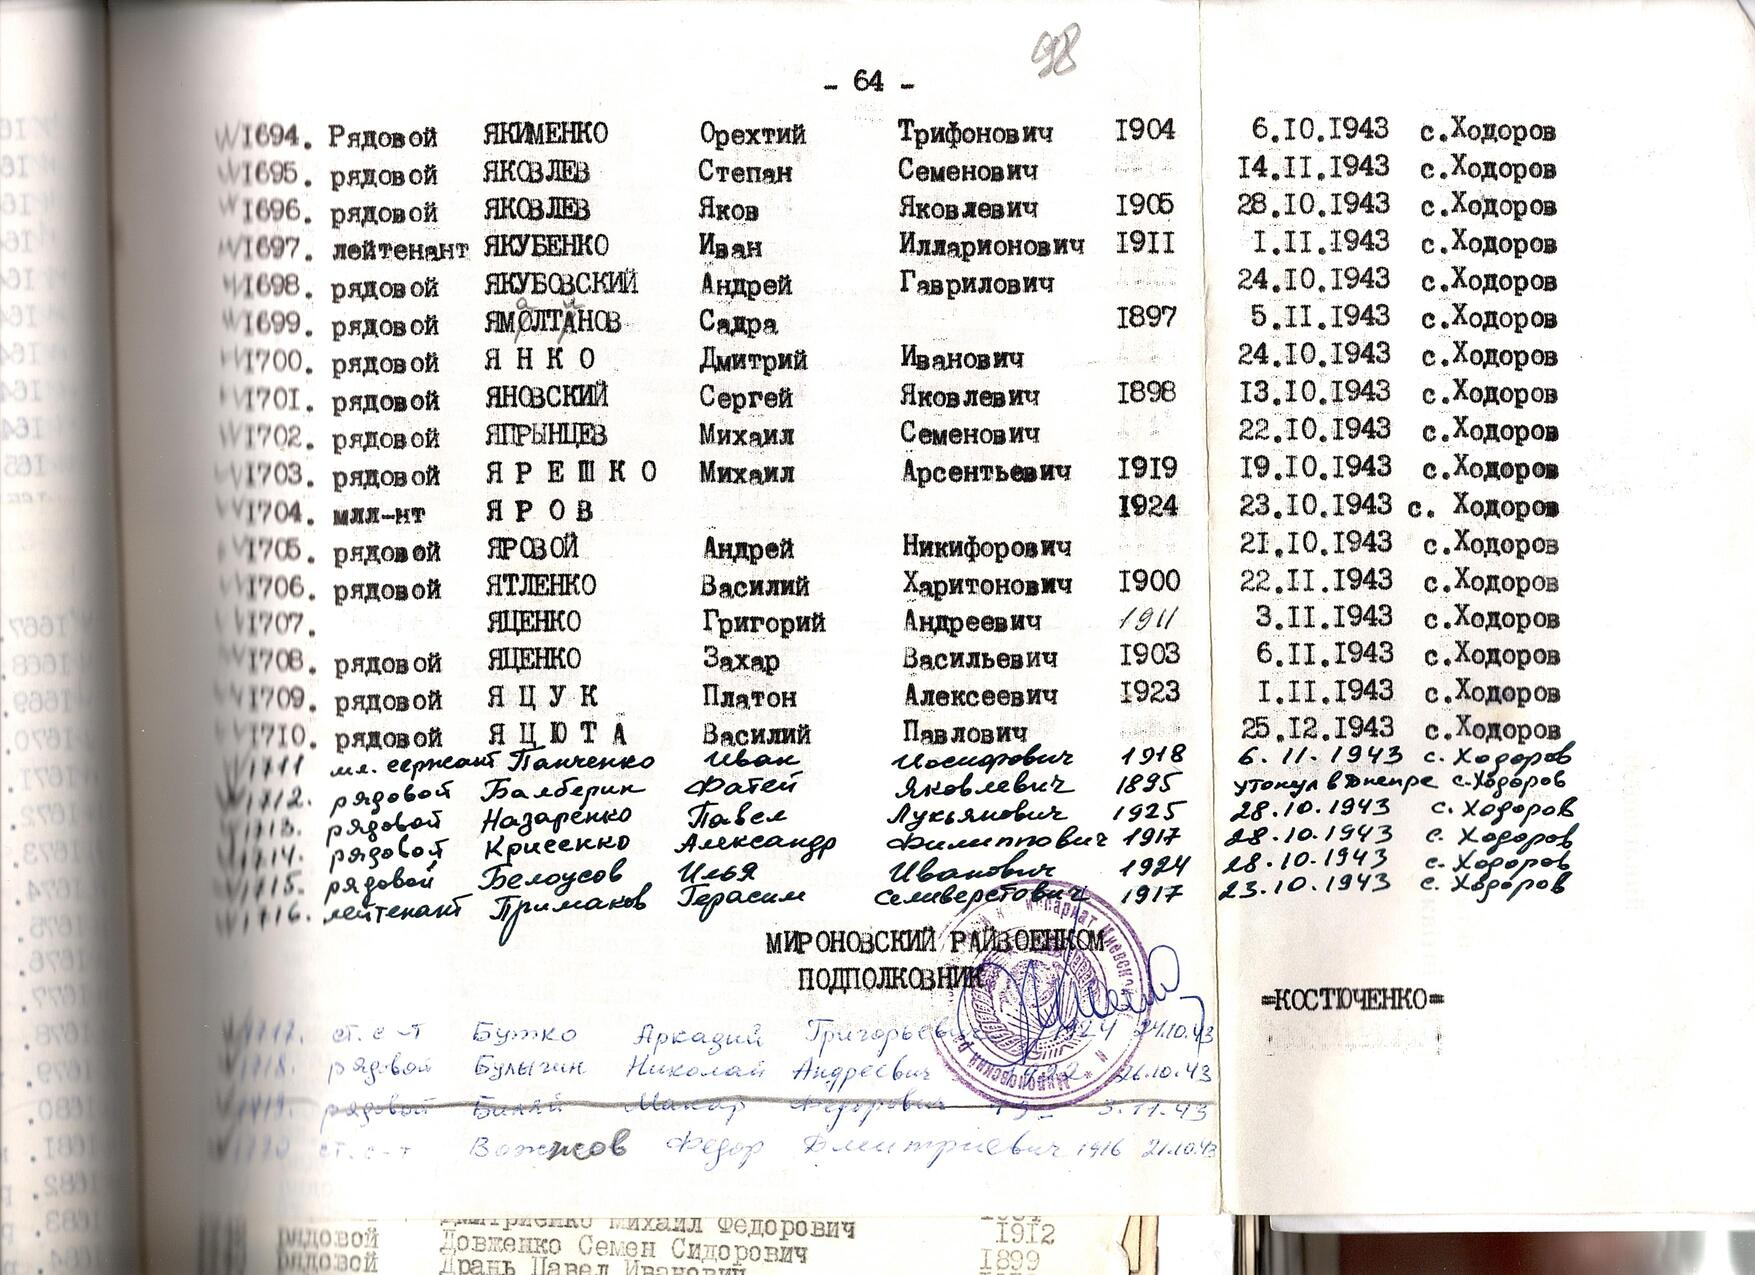 98
- 64 -
1694. Рядовой ЯКИМЕНКО Орехтий Трифонович 1904 6.10.1943 с.Ходоров
1695. рядовой ЯКОВЛЕВ Степан Семенович 14.11.1943 с.Ходоров
1696. рядовой ЯКОВЛЕВ Яков Яковлевич 1905 28.10.1943 с.Ходоров
1697. лейтенант ЯКУБЕНКО Иван Илларионович 1911 1.11.1943 с.Ходоров
1698. рядовой ЯКУБОВСКИЙ Андрей Гаврилович 24.10.1943 с.Ходоров
1699. рядовой Садра 1897 5.11.1943 с.Ходоров
1700. рядовой Я Н К О Дмитрий Иванович 24.10.1943 с.Ходоров
1701. рядовой ЯНОВСКИЙ Сергей Яковлевич 1898 13.10.1943 с.Ходоров
1702. рядовой ЯПРЫНЦЕВ Михаил Семенович 22.10.1943 с.Ходоров
1703. рядовой Я Р Е Ш К О Михаил Арсентьевич 1919 19.10.1943 с.Ходоров
1704. мл л-нт Я Р О В 1924 23.10.1943 с. Ходоров
1705. рядовой ЯРОВОЙ Андрей Никифорович 21.10.1943 с.Ходоров
1706. рядовой ЯТЛЕНКО Василий Харитонович 1900 22.11.1943 с.Ходоров
1707. ЯЦЕНКО Григорий Андреевич 1911 3.11.1943 с.Ходоров
1708. рядовой ЯЦЕНКО Захар Васильевич 1903 6.11.1943 с.Ходоров
1709. рядовой Я Ц У К Платон Алексеевич 1923 1.11.1943 с.Ходоров
1710. рядовой Я Ц Ю Т А Василий Павлович 25.12.1943 с.Ходоров
1711 мл. сержант Панченко Иван Иосифович 1918 6.11.1943 с. Ходоров
1712. рядовой Балберин Фатей Яковлевич 1895 утонул в Днепре с.Ходоров
1713. рядовой Назаренко Павел Лукьянович 1925 28.10.1943 с. Ходоров
1714. рядовой Крисенко Александр Филиппович 1917 28.10.1943 с. Ходоров
1715. рядовой Белоусов Илья Иванович 1924 28.10.1943 с. Ходоров
1716. лейтенант Примаков Герасим Селиверстович 1917 23.10.1943 с. Ходоров
МИРОНОВСКИЙ РАЙВОЕНКОМ
ПОДПОЛКОВНИК
=КОСТЮЧЕНКО=
1717. ст. с-т Бутко Аркадий Григорьевич 1924 24.10.43
1718. рядовой Булыгин Николай Андреевич 1922 26.10.43
1719. рядовой Макар Федорович 3.11.43
1720 ст. с-т Федор Дмитриевич 1916 21.10.43
Дмитриенко Михаил Федорович
рядовой Довженко Семен Сидорович 1912
рядовой Дрань Павел Иванович 1899